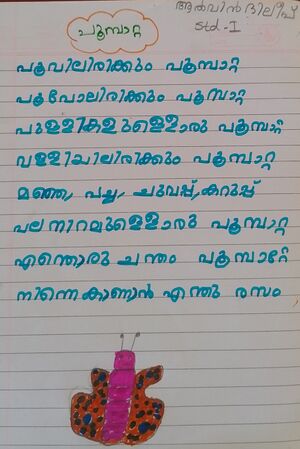 ആൽവിൻ ദിലീപ്
Std - I
പൂമ്പാറ്റ
പൂവിലിരിക്കും പൂമ്പാറ്റ
പൂപോലിരിക്കും പൂമ്പാറ്റ
പുള്ളികളുള്ളൊരു പൂമ്പാറ്റ
വള്ളിയിലിരിക്കും പൂമ്പാറ്റ
മഞ്ഞ, പച്ച, ചുവപ്പ്, കറുപ്പ്
പല നിറമുള്ളൊരു പൂമ്പാറ്റ
എന്തൊരു ചന്തം പൂമ്പാറ്റേ
നിന്നെകാണാൻ എന്തു രസം